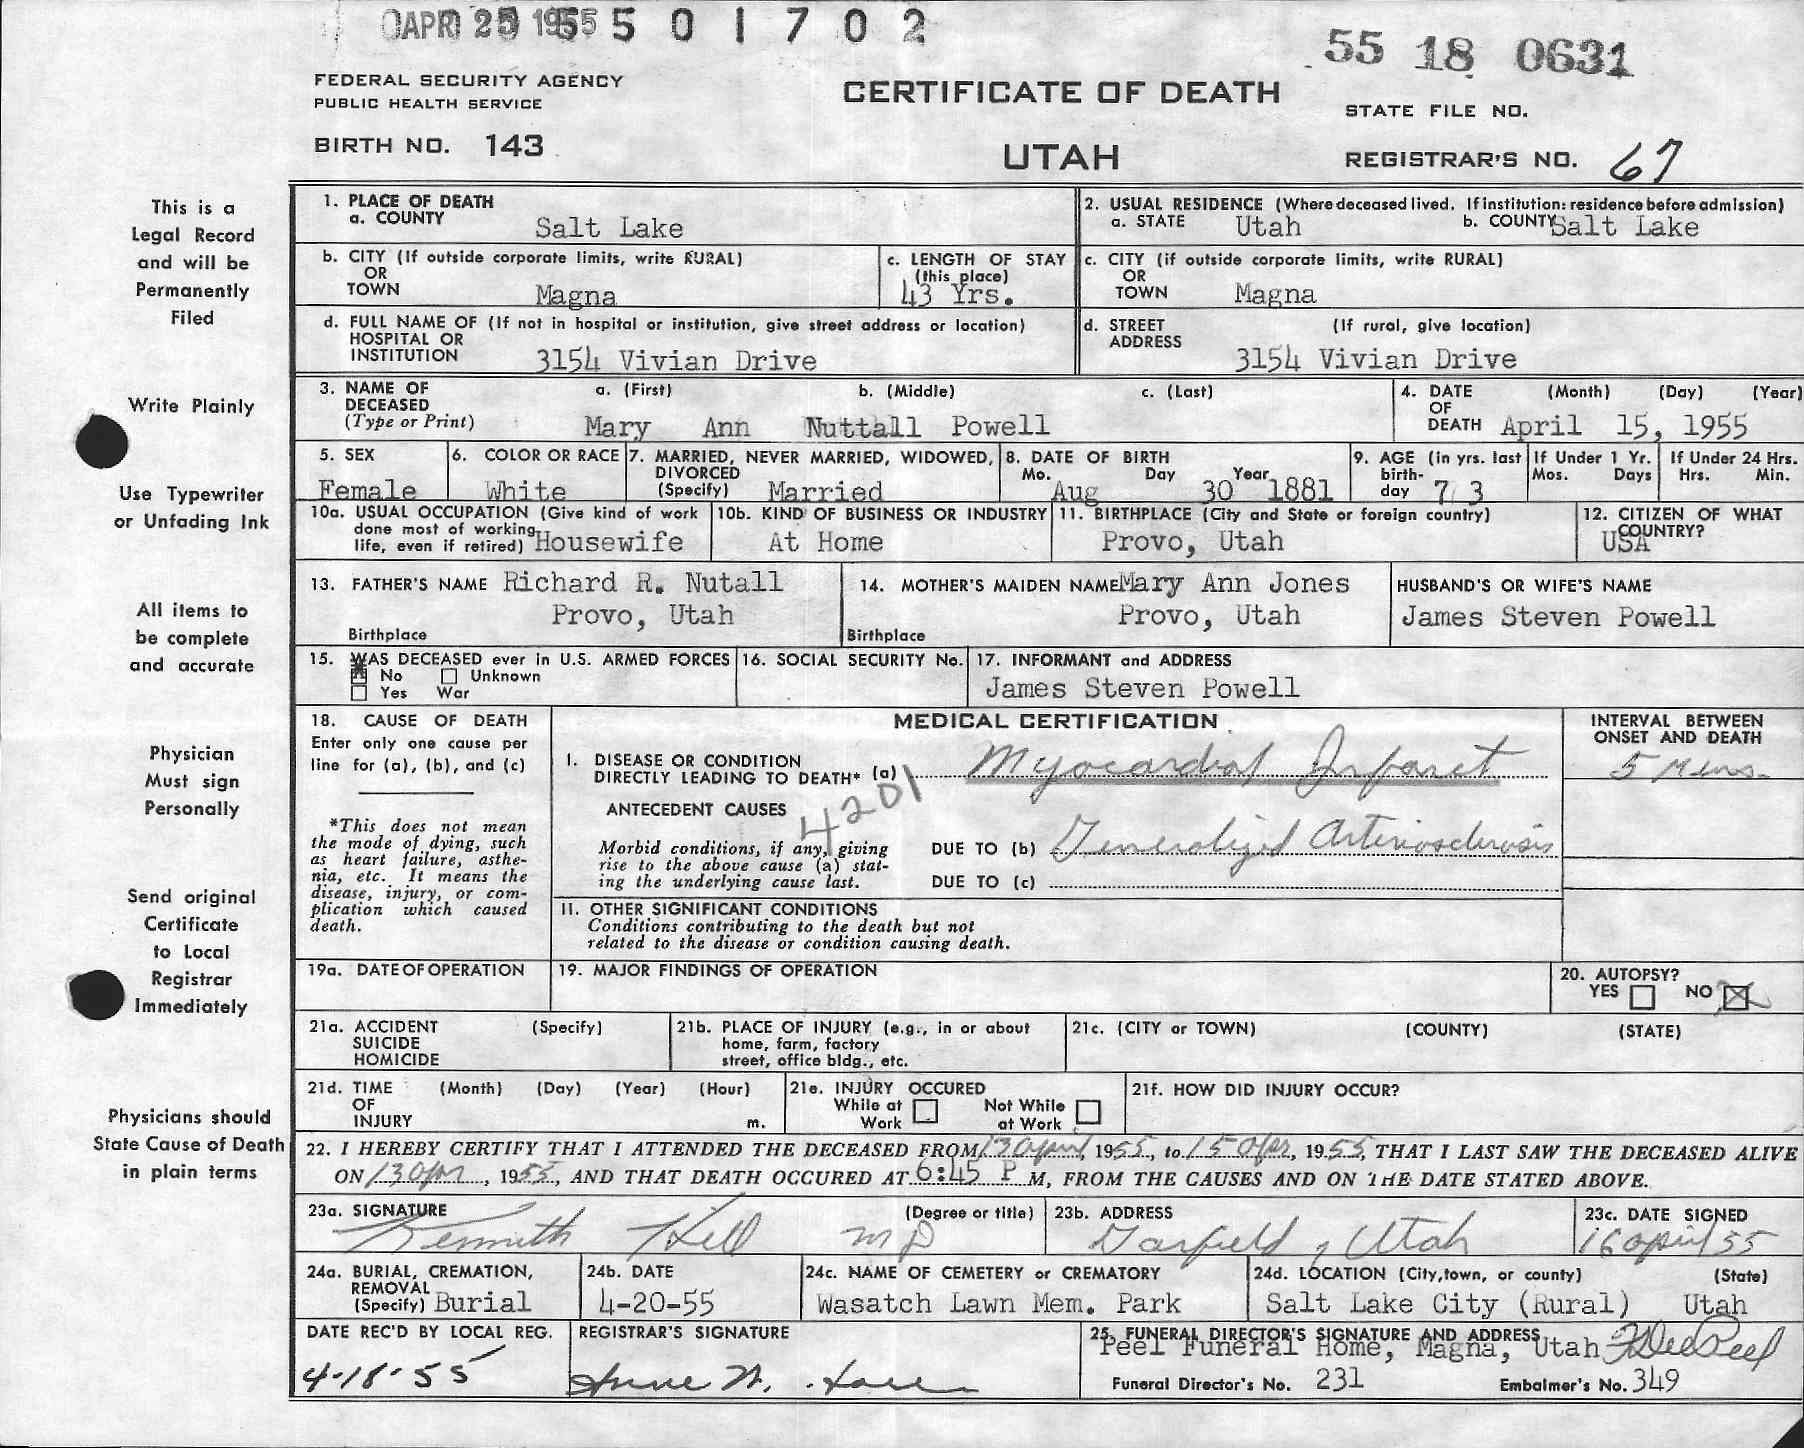 APR 25 1955 5 0 1 7 0 2
55 18 0631
FEDERAL SECURITY AGENCY
PUBLIC HEALTH SERVICE
CERTIFICATE OF DEATH
STATE FILE NO.
BIRTH NO. 143
UTAH
REGISTRAR'S NO. 67
This is a
Legal Record
and will be
Permanently
Filed
Write Plainly
Use Typewriter
or Unfading Ink
All items to
be complete
and accurate
Physician
Must sign
Personally
Send original
Certificate
to Local
Registrar
Immediately
Physicians should
State Cause of Death
in plain terms
1. PLACE OF DEATH
a. COUNTY Salt Lake
2. USUAL RESIDENCE (Where deceased lived. If institution: residence before admission)
a. STATE Utah b. COUNTY Salt Lake
b. CITY (If outside corporate limits, write RURAL)
OR
TOWN Magna
c. LENGTH OF STAY
(this place)
43 Yrs.
c. CITY (if outside corporate limits, write RURAL)
OR
TOWN Magna
d. FULL NAME OF (If not in hospital or institution, give street address or location)
HOSPITAL OR
INSTITUTION 3154 Vivian Drive
d. STREET (If rural, give location)
ADDRESS
3154 Vivian Drive
3. NAME OF a. (First) b. (Middle) c. (Last)
DECEASED
(Type or Print) Mary Ann Nuttall Powell
4. DATE (Month) (Day) (Year)
OF
DEATH April 15, 1955
5. SEX
Female
6. COLOR OR RACE
White
7. MARRIED, NEVER MARRIED, WIDOWED,
DIVORCED
(Specify) Married
8. DATE OF BIRTH
Mo. Day Year
Aug 30 1881
9. AGE (in yrs. last
birth-
day 73
If Under 1 Yr.
Mos. Days
If Under 24 Hrs.
Hrs. Min.
10a. USUAL OCCUPATION (Give kind of work
done most of working
life, even if retired) Housewife
10b. KIND OF BUSINESS OR INDUSTRY
At Home
11. BIRTHPLACE (City and State or foreign country)
Provo, Utah
12. CITIZEN OF WHAT
COUNTRY?
USA
13. FATHER'S NAME Richard R. Nutall
Provo, Utah
Birthplace
14. MOTHER'S MAIDEN NAME Mary Ann Jones
Provo, Utah
Birthplace
HUSBAND'S OR WIFE'S NAME
James Steven Powell
15. WAS DECEASED ever in U.S. ARMED FORCES
No Unknown
Yes War
16. SOCIAL SECURITY No.
17. INFORMANT and ADDRESS
James Steven Powell
18. CAUSE OF DEATH
Enter only one cause per
line for (a), (b), and (c)
*This does not mean
the mode of dying, such
as heart failure, asthe-
nia, etc. It means the
disease, injury, or com-
plication which caused
death.
MEDICAL CERTIFICATION
INTERVAL BETWEEN
ONSET AND DEATH
I. DISEASE OR CONDITION
DIRECTLY LEADING TO DEATH* (a) Myocardial Infarct
5 Mins.
4201
ANTECEDENT CAUSES
Morbid conditions, if any, giving
rise to the above cause (a) stat-
ing the underlying cause last.
DUE TO (b) Generalized Arteriosclerosis
DUE TO (c)
II. OTHER SIGNIFICANT CONDITIONS
Conditions contributing to the death but not
related to the disease or condition causing death.
19a. DATE OF OPERATION
19. MAJOR FINDINGS OF OPERATION
20. AUTOPSY?
YES NO
21a. ACCIDENT (Specify)
SUICIDE
HOMICIDE
21b. PLACE OF INJURY (e.g., in or about
home, farm, factory
street, office bldg., etc.
21c. (CITY or TOWN) (COUNTY) (STATE)
21d. TIME (Month) (Day) (Year) (Hour)
OF
INJURY m.
21e. INJURY OCCURED
While at Work Not While at Work
21f. HOW DID INJURY OCCUR?
22. I HEREBY CERTIFY THAT I ATTENDED THE DECEASED FROM 13 April, 1955, to 15 Apr, 1955, THAT I LAST SAW THE DECEASED ALIVE
ON 13 Apr, 1955, AND THAT DEATH OCCURED AT 6:45 P M, FROM THE CAUSES AND ON THE DATE STATED ABOVE.
23a. SIGNATURE (Degree or title)
Kenneth Hill MD
23b. ADDRESS
Garfield, Utah
23c. DATE SIGNED
16 April 55
24a. BURIAL, CREMATION,
REMOVAL
(Specify) Burial
24b. DATE
4-20-55
24c. NAME OF CEMETERY or CREMATORY
Wasatch Lawn Mem. Park
24d. LOCATION (City, town, or county) (State)
Salt Lake City (Rural) Utah
DATE REC'D BY LOCAL REG.
4-18-55
REGISTRAR'S SIGNATURE
Anne W.
25. FUNERAL DIRECTOR'S SIGNATURE AND ADDRESS
Peel Funeral Home, Magna, Utah Dee Peel
Funeral Director's No. 231 Embalmer's No. 349